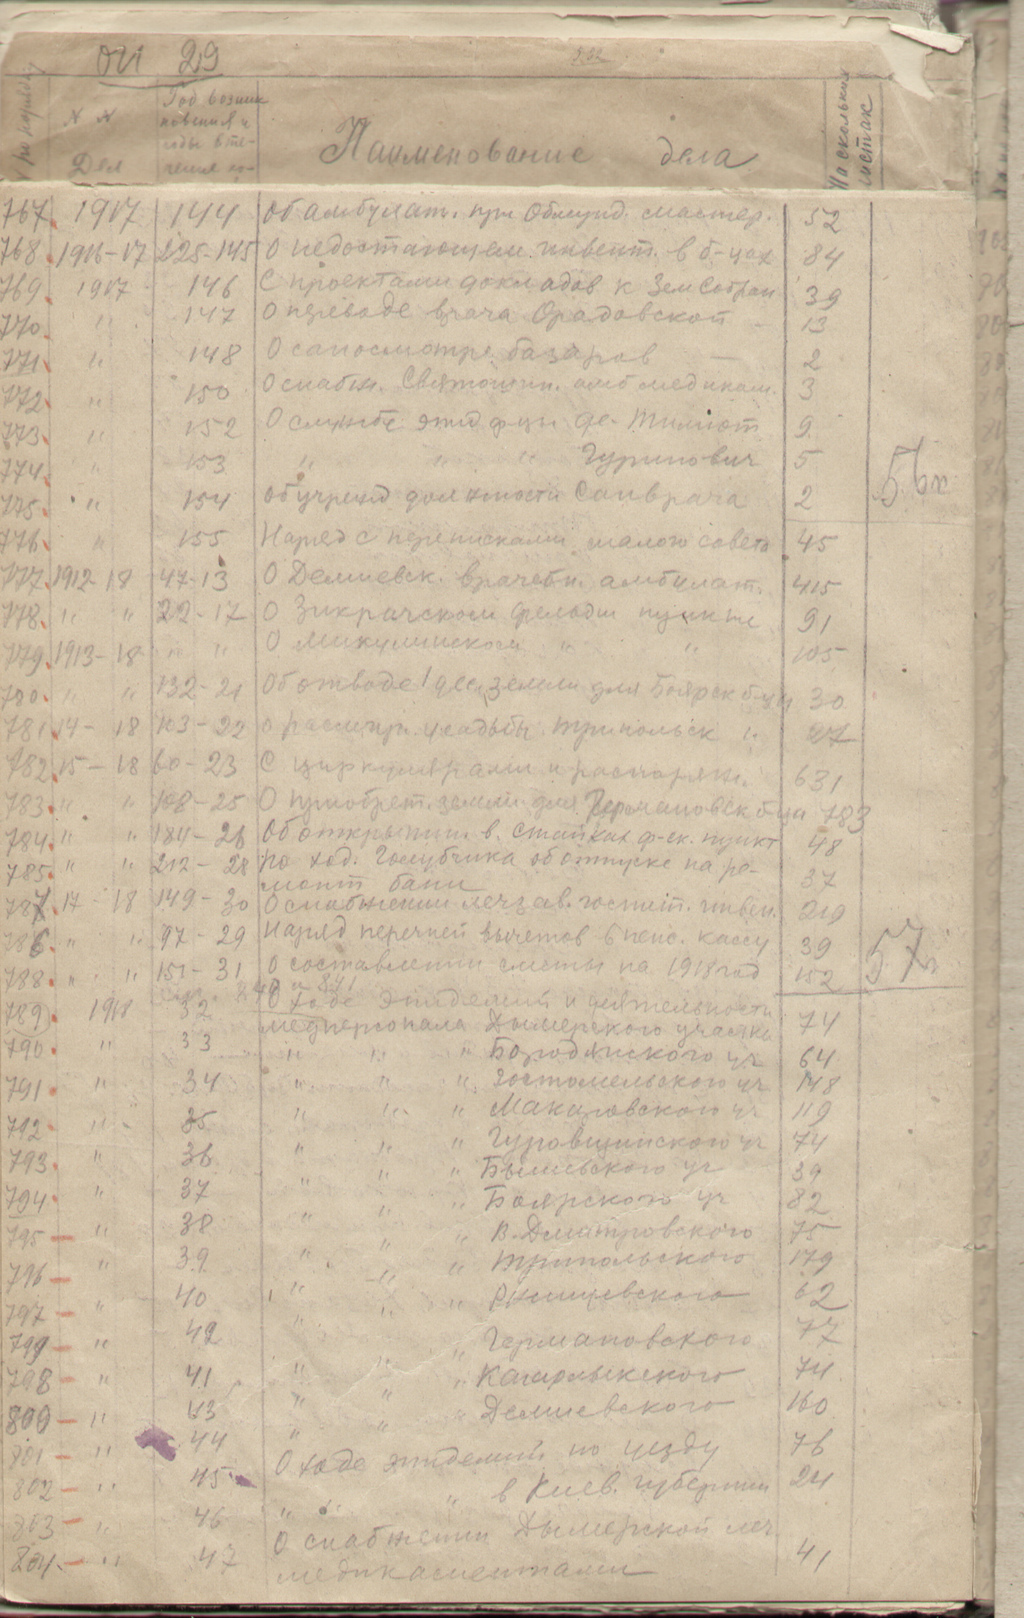 оп 29
№ № Дел
Год возник новения и годы в те- чение ко-
Наименование дела
На скольких листах
767. 1917 144 Об амбулат. при Обмунд. мастер. 52
768. 1916-17 225-145 О недостающем инвент. в б-цах 84
769. 1917 146 С проектами докладов к Зем Собран 39
770. " 147 О переводе врача Орадовской 13
771. " 148 О саносмотре базаров — 2
772. " 150 О снабж. Святошин. амб медикам. 3
773. " 152 О службе эпид ф-цы 9
774. " 153 " " " Гуринович 5
775. " 154 Об учрежд должности Санврача 2
56к
776. " 155 Наряд с переписками малого совета 45
777. 1912 18 47-13 О Демиевск. врачебн. амбулат. 415
778. " " 22-17 О Зикрачском фельдш пункте 91
779. 1913-18 " " О Микулинском " " 105
780. " " 132-21 Об отводе 1 дес. земли для Боярск б-цы 30
781 14-18 103-22 О расшир. усадьбы Трипольск " 27
782. 15-18 60-23 С циркулярами и распоряж. 631
783. " " 108-25 О приобрет. земли для Германовск б-цы 783
784. " " 184-26 Об открытии в Стайках ф-ск. пункт 48
785. " " 212-28 по ход. Голубчика об отпуске на ре-
монт бани 37
787 17-18 149-30 О снабжении леч зав. госпит. инвен. 219
786. " " 97-29 Наряд перечней вычетов в пенс. кассу 39
788. " " 151-31 О составлении сметы на 1918 год 152
57к
789. 1918 32 О ходе эпидемий и деятельности
медперсонала Дымерского участка 74
790. " 33 " " " Бородянского уч 64
791. " 34 " " " Гостомельского уч 148
792. " 35 " " " Макаровского уч 119
793. " 36 " " " Гуровщинского уч 74
794. " 37 " " " Бышевского уч 39
795 — " 38 " " " Боярского уч 82
796 — " 39 " " " В. Дмитровского 75
797 — " 40 " " " Трипольского 179
799 — " 42 " " " Ржищевского 62
798 — " 41 " " " Германовского 77
800 — " 43 " " " Кагарлыкского 74
801 — " 44 " " " Демиевского 160
802 — " 45 О ходе эпидемий по уезду 76
803 — " 46 " " " в Киев. губернии 24
804 — " 47 О снабжении Дымерской леч
медикаментами 41